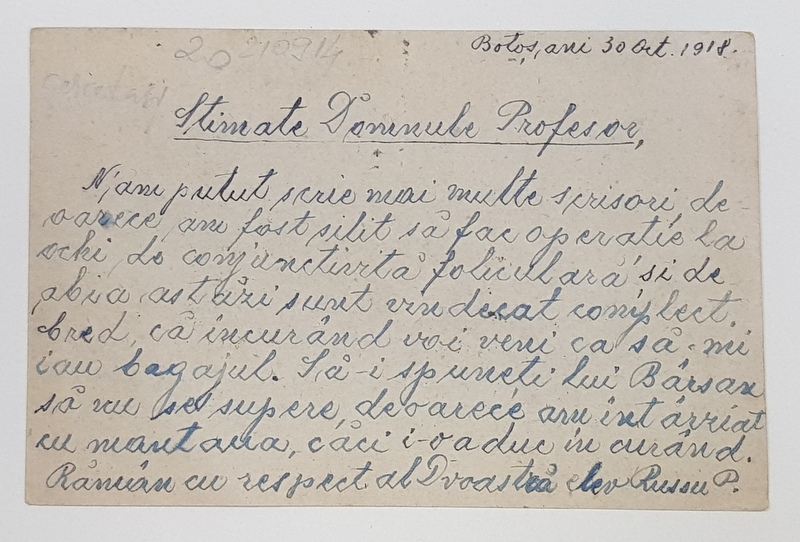 Botoșani 30 Oct. 1918.
Stimate Domnule Profesor,
N'am putut scrie mai multe scrisori, de-
oarece am fost silit să fac operatie la
ochi de conjunctivită foliculară și de
abia astăzi sunt vindecat complect.
Cred, că incurând voi veni ca să-mi
iau bagajul. Să-i spuneti lui Bârsan
să nu se supere, deoarece am intârziat
cu mantaua, căci i-o aduc in curând.
Rămân cu respect al Dvoastră elev Russu P.